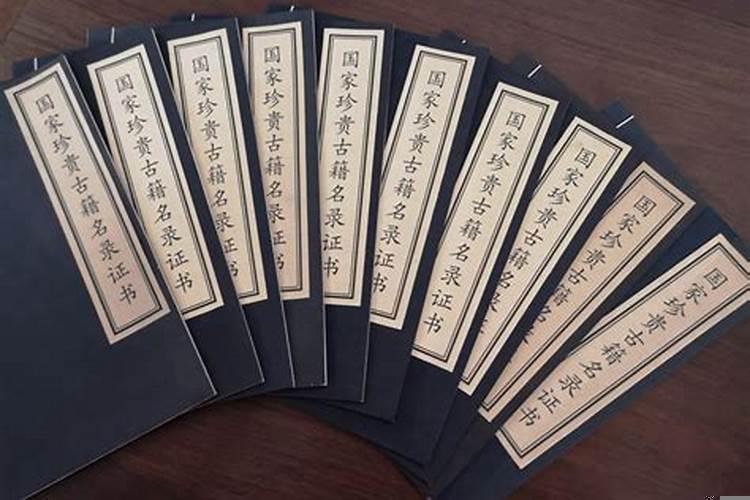 国家珍贵古籍名录证书
国家珍贵古籍名录证书
国家珍贵古籍名录证
国家珍贵古籍名录证
国家珍贵古籍名录证书
国家珍贵古籍名录证书
国家珍贵古籍名录证书
国家珍贵古籍名录证书
国家珍贵古籍名录证书
国家珍贵古籍名录证书